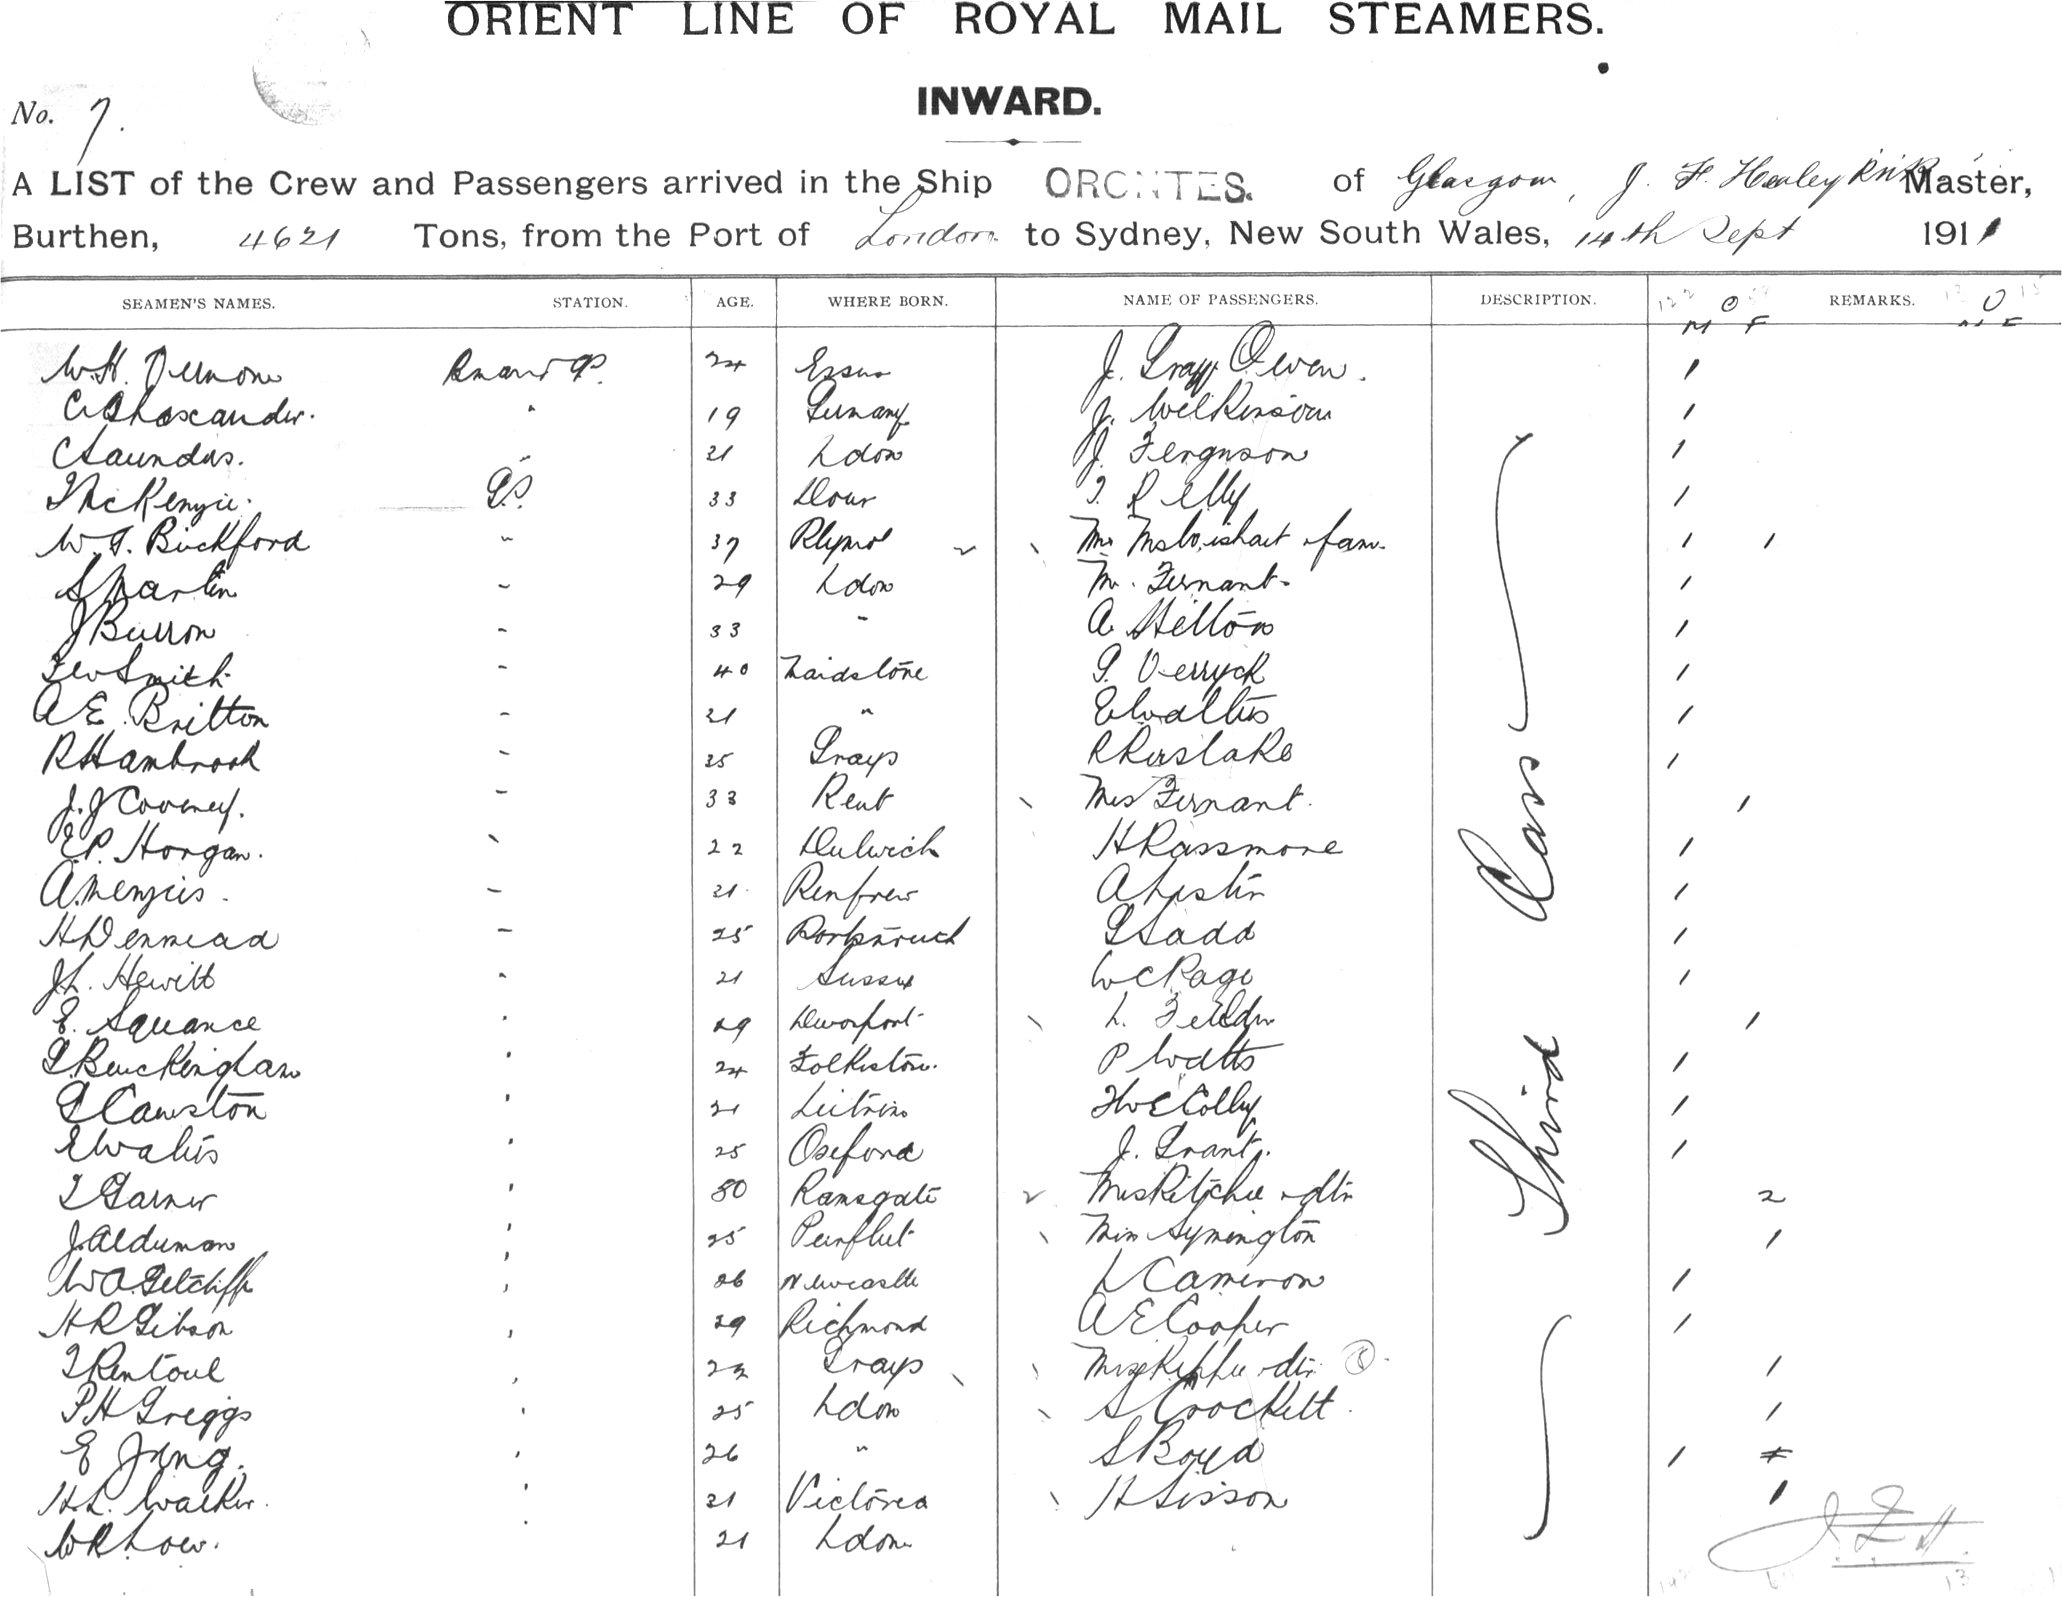 ORIENT LINE OF ROYAL MAIL STEAMERS.
INWARD.
No. 7.
A LIST of the Crew and Passengers arrived in the Ship ORONTES. of Glasgow, J. F. Healey Master,
Burthen, 4621 Tons, from the Port of London to Sydney, New South Wales, 14th Sept 1911
SEAMEN'S NAMES. STATION. AGE. WHERE BORN. NAME OF PASSENGERS. DESCRIPTION. REMARKS.
M F M F
W.H. 24 Essex J. Owen. 1
19 Germany J. Wilkinson 1
C Saunders. " 21 Ldon J. Ferguson 1
T McKenzie. 33 Dour 1
W. J. Bickford " 37 Plymo fam. 1 1
S Martin " 29 Ldon M. Fernant. 1
J Burron " 33 " A Hilton 1
F W Smith " 40 Maidstone G. Verryck 1
A E. Britton " 21 " E Walters 1
R Hambrook " 25 Grays R Kerslake 1
J. J Coveney. " 33 Kent Mrs Fernant. 1
E.P. Horgan. " 22 Dulwich H Passmore 1
A. Menzies. " 21 Renfrew 1
H Denmead " 25 G Ladd 1
J L. Hewitt " 21 Sussex W C Page 1
E. Squance " 29 Devonport L. 1
G. Buckingham " 24 Folkeston. P Watts 1
G Cawston " 21 Leitrim 1
E Walters " 25 Oxford J. Grant. 1
T Garner " 30 Ramsgate Mrs Ritchie dtr 2
J. Alderman " 25 Purfleet Miss Symington 1
W A. Getcliffe " 26 Newcastle L Cameron 1
H R Gibson " 29 Richmond A E Cooper 1
T Rentoul " Grays dtr 1
P H Greggs " 25 Ldon S Crockett. 1
E Jung. " 26 " S Boyd 1
H.L. Walker. " 21 Victoria H Sisson 1
W R Low. " 21 Ldon
Third Class